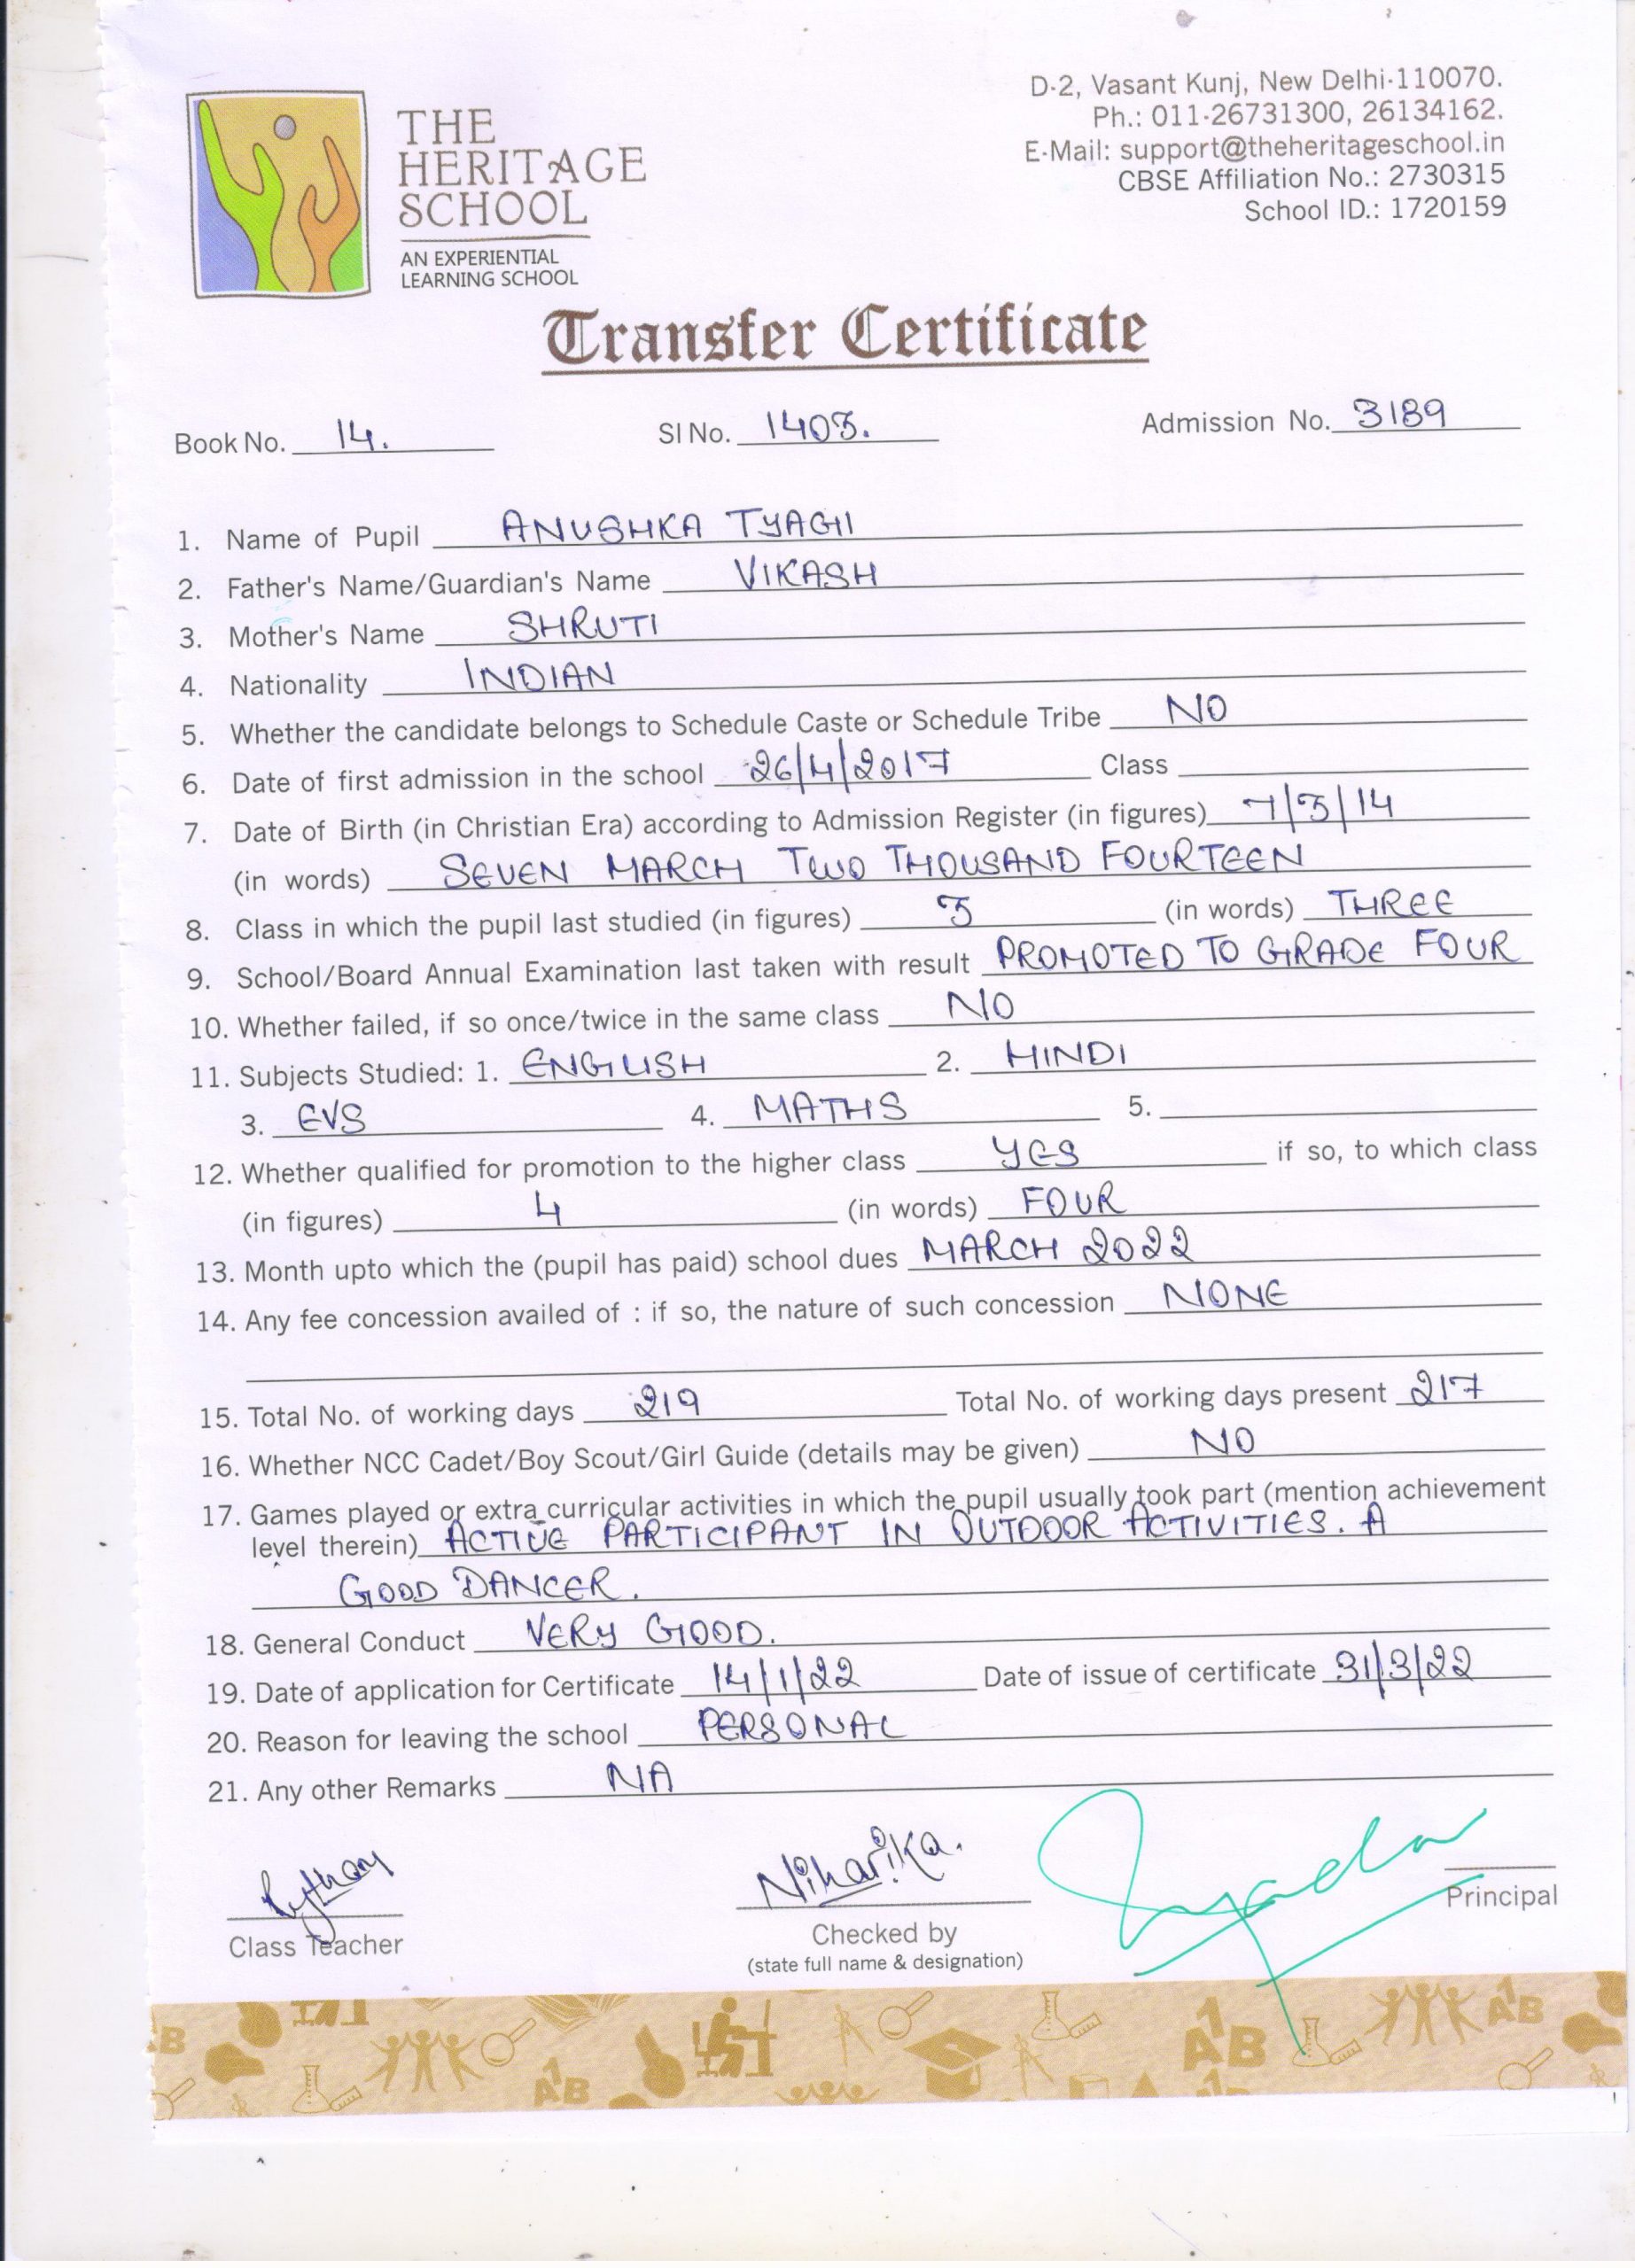 THE
HERITAGE
SCHOOL
AN EXPERIENTIAL
LEARNING SCHOOL
D-2, Vasant Kunj, New Delhi-110070.
Ph.: 011-26731300, 26134162.
E-Mail: support@theheritageschool.in
CBSE Affiliation No.: 2730315
School ID.: 1720159
Transfer Certificate
Book No. 14. Sl No. 1403. Admission No. 3189
1. Name of Pupil ANUSHKA TYAGI
2. Father's Name/Guardian's Name VIKASH
3. Mother's Name SHRUTI
4. Nationality INDIAN
5. Whether the candidate belongs to Schedule Caste or Schedule Tribe NO
6. Date of first admission in the school 26/4/2017 Class
7. Date of Birth (in Christian Era) according to Admission Register (in figures) 7/3/14
(in words) SEVEN MARCH TWO THOUSAND FOURTEEN
8. Class in which the pupil last studied (in figures) 3 (in words) THREE
9. School/Board Annual Examination last taken with result PROMOTED TO GRADE FOUR
10. Whether failed, if so once/twice in the same class NO
11. Subjects Studied: 1. ENGLISH 2. HINDI
3. EVS 4. MATHS 5.
12. Whether qualified for promotion to the higher class YES if so, to which class
(in figures) 4 (in words) FOUR
13. Month upto which the (pupil has paid) school dues MARCH 2022
14. Any fee concession availed of : if so, the nature of such concession NONE
15. Total No. of working days 219 Total No. of working days present 217
16. Whether NCC Cadet/Boy Scout/Girl Guide (details may be given) NO
17. Games played or extra curricular activities in which the pupil usually took part (mention achievement
level therein) ACTIVE PARTICIPANT IN OUTDOOR ACTIVITIES. A
GOOD DANCER.
18. General Conduct VERY GOOD.
19. Date of application for Certificate 14/1/22 Date of issue of certificate 31/3/22
20. Reason for leaving the school PERSONAL
21. Any other Remarks NA
Niharika.
Class Teacher Checked by Principal
(state full name & designation)